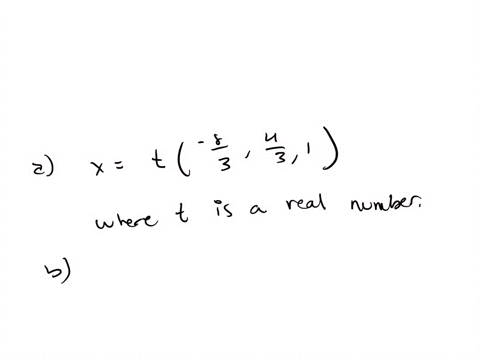 a) x = t(-8/3, 4/3, 1)
where t is a real number.
b)